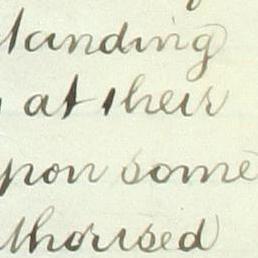 tanding
at their
upon some
thorised